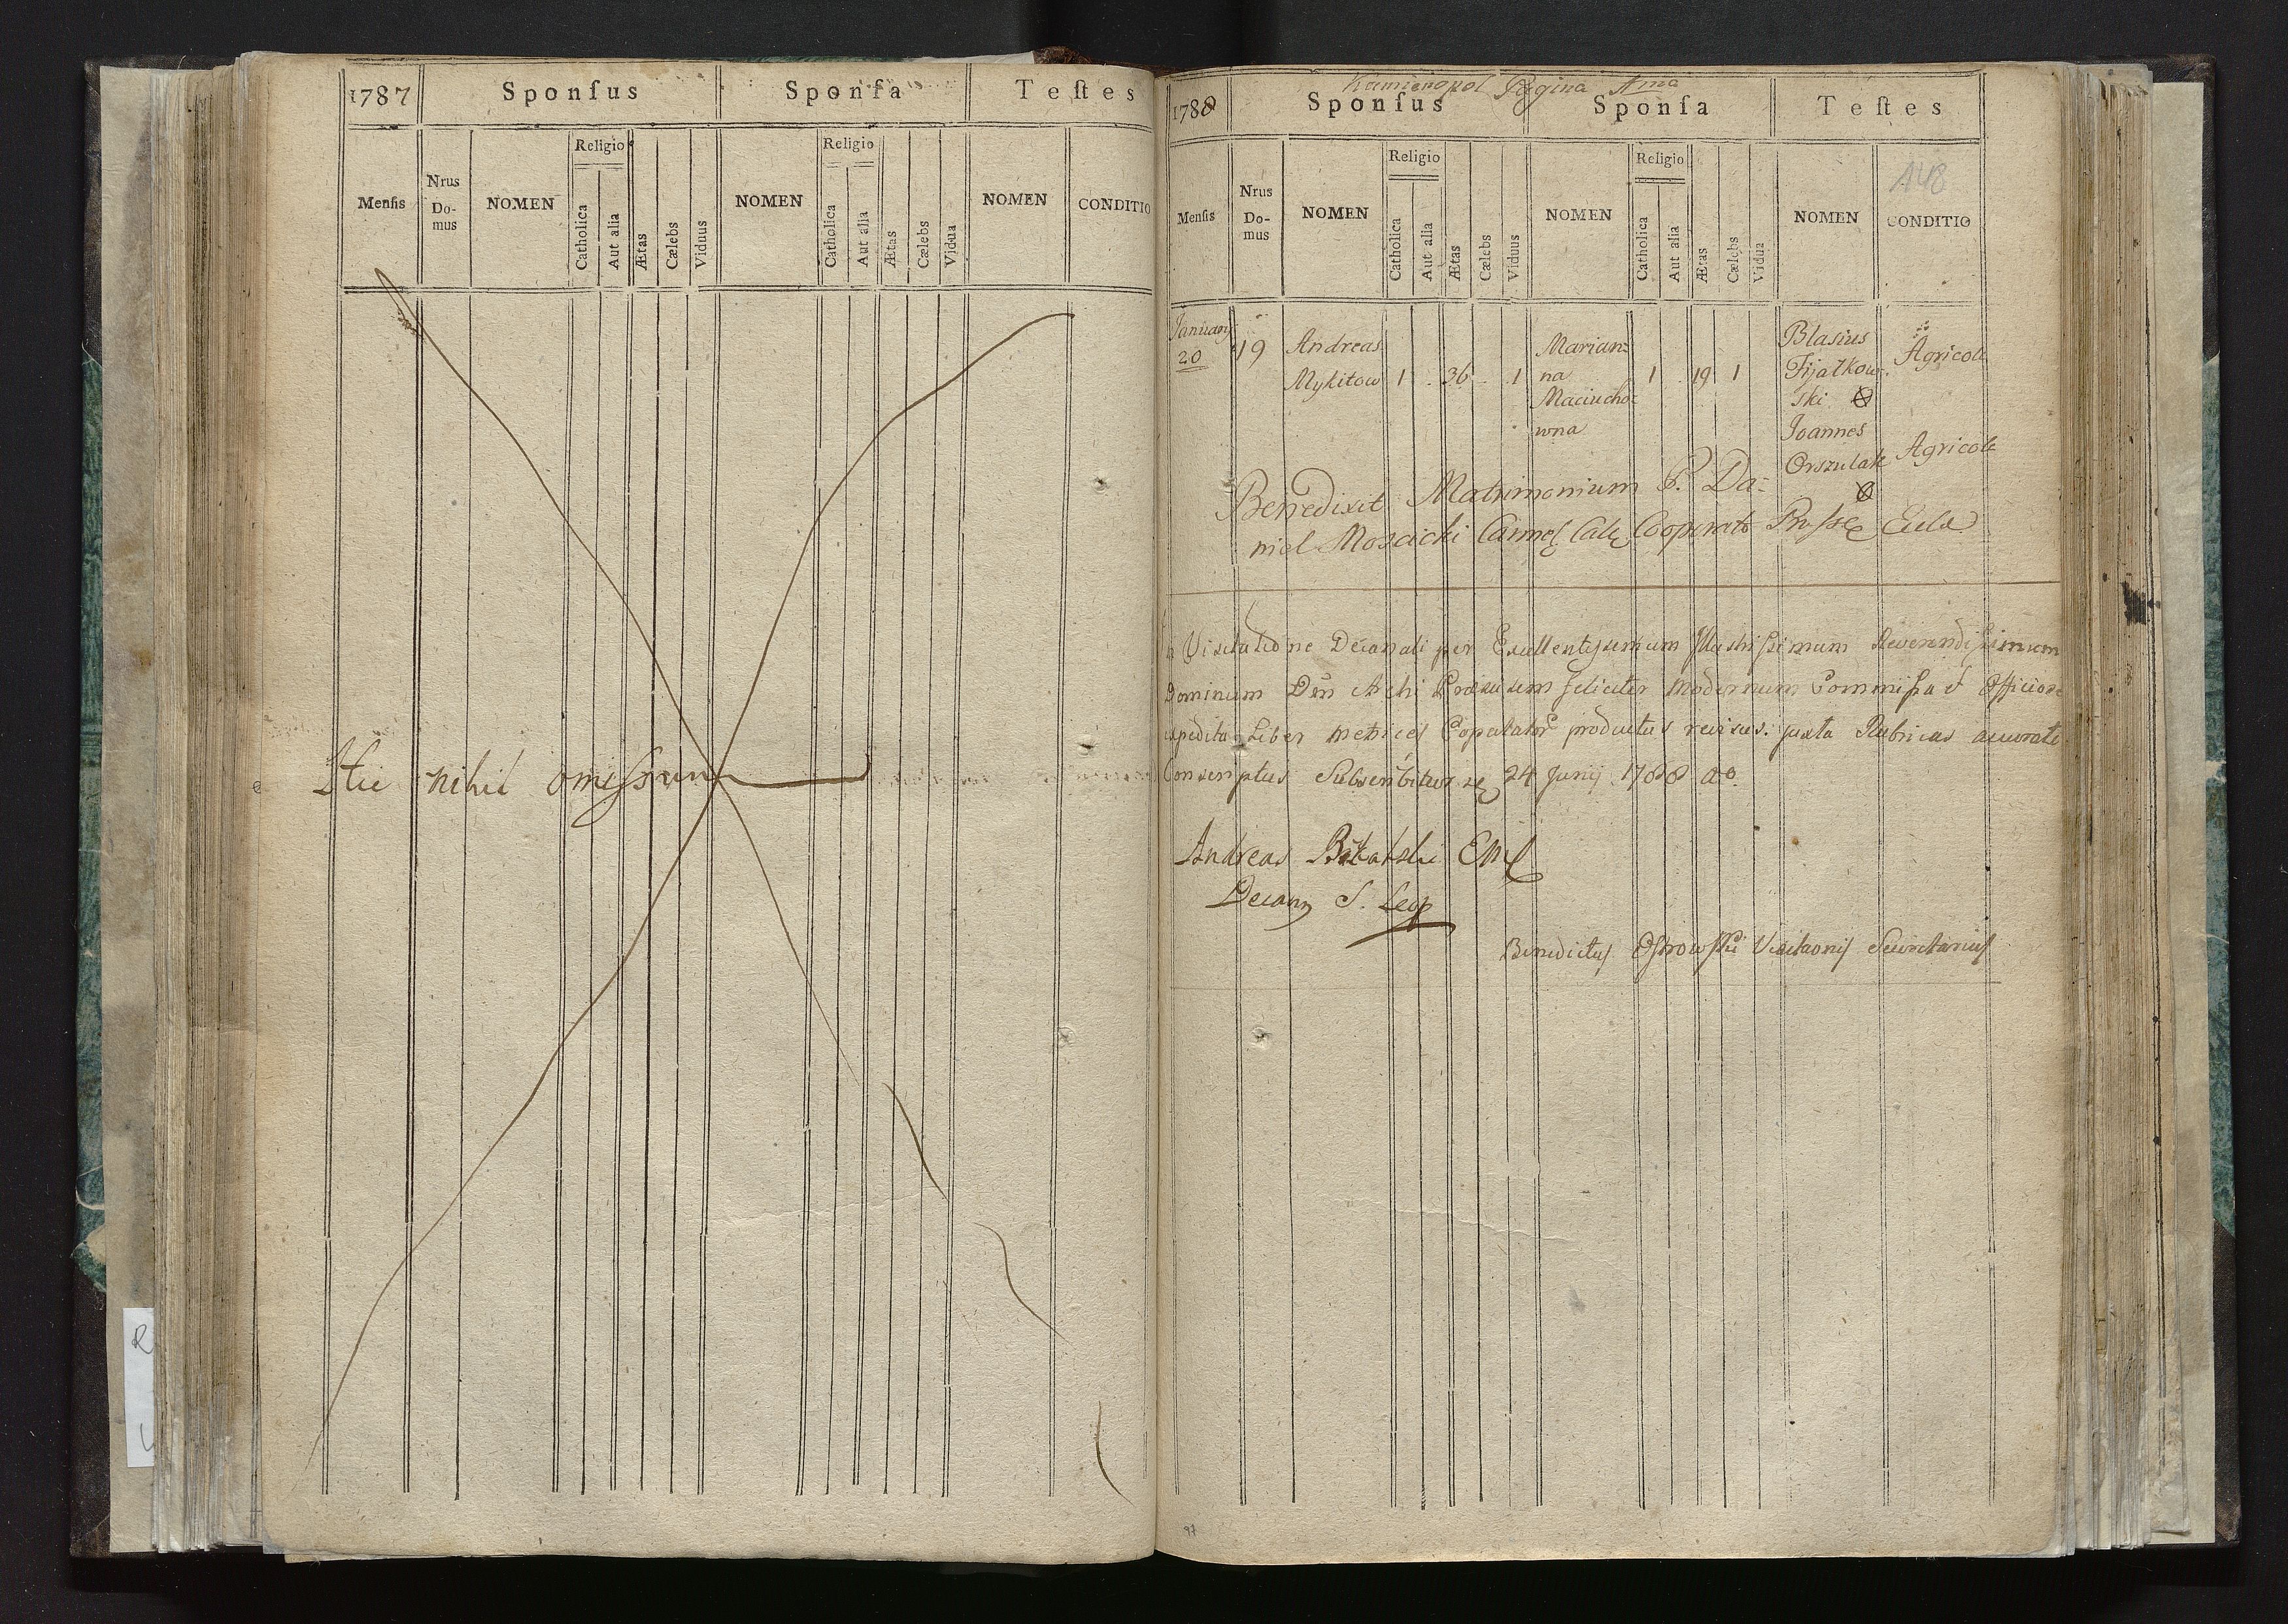 1787 Sponſus Sponſa Teſtes
Menſis Nrus Do- mus NOMEN Religio Catholica Aut alia Ætas Cælebs Viduus NOMEN Religio Catholica Aut alia Ætas Cælebs Vidua NOMEN CONDITIO
Hic nihil omiſsum
Kamienopol Pagina 1ma
1788 Sponſus Sponſa Teſtes
148
Menſis Nrus Do- mus NOMEN Religio Catholica Aut alia Ætas Cælebs Viduus NOMEN Religio Catholica Aut alia Ætas Cælebs Vidua NOMEN CONDITIO
January
20
19
Andreas
Mykitow 1 36 1
Marian=
na
Maciucho=
wna
1 19 1
Blasius
Fijałkow=
ski
Agricola
Joannes
Orszulak
Agricola
Benedixit Matrimonium P. Da=
niel Moscicki Carmel Calc Cooperato
Visitatione Decanali per Excellentyssimum Illustrissimum Reverendissimum
Dominum Dnn Archi Præsulem feliciter modernum Commissa & Officiose
expedita Liber metrices Copulator productus revisus. juxta Rubricas accurate
Conscriptus Subscribitur 24 Junij 1788 ao.
Andreas
Decan
Benedictus Ostrowski Visitaonis Secretarius
97